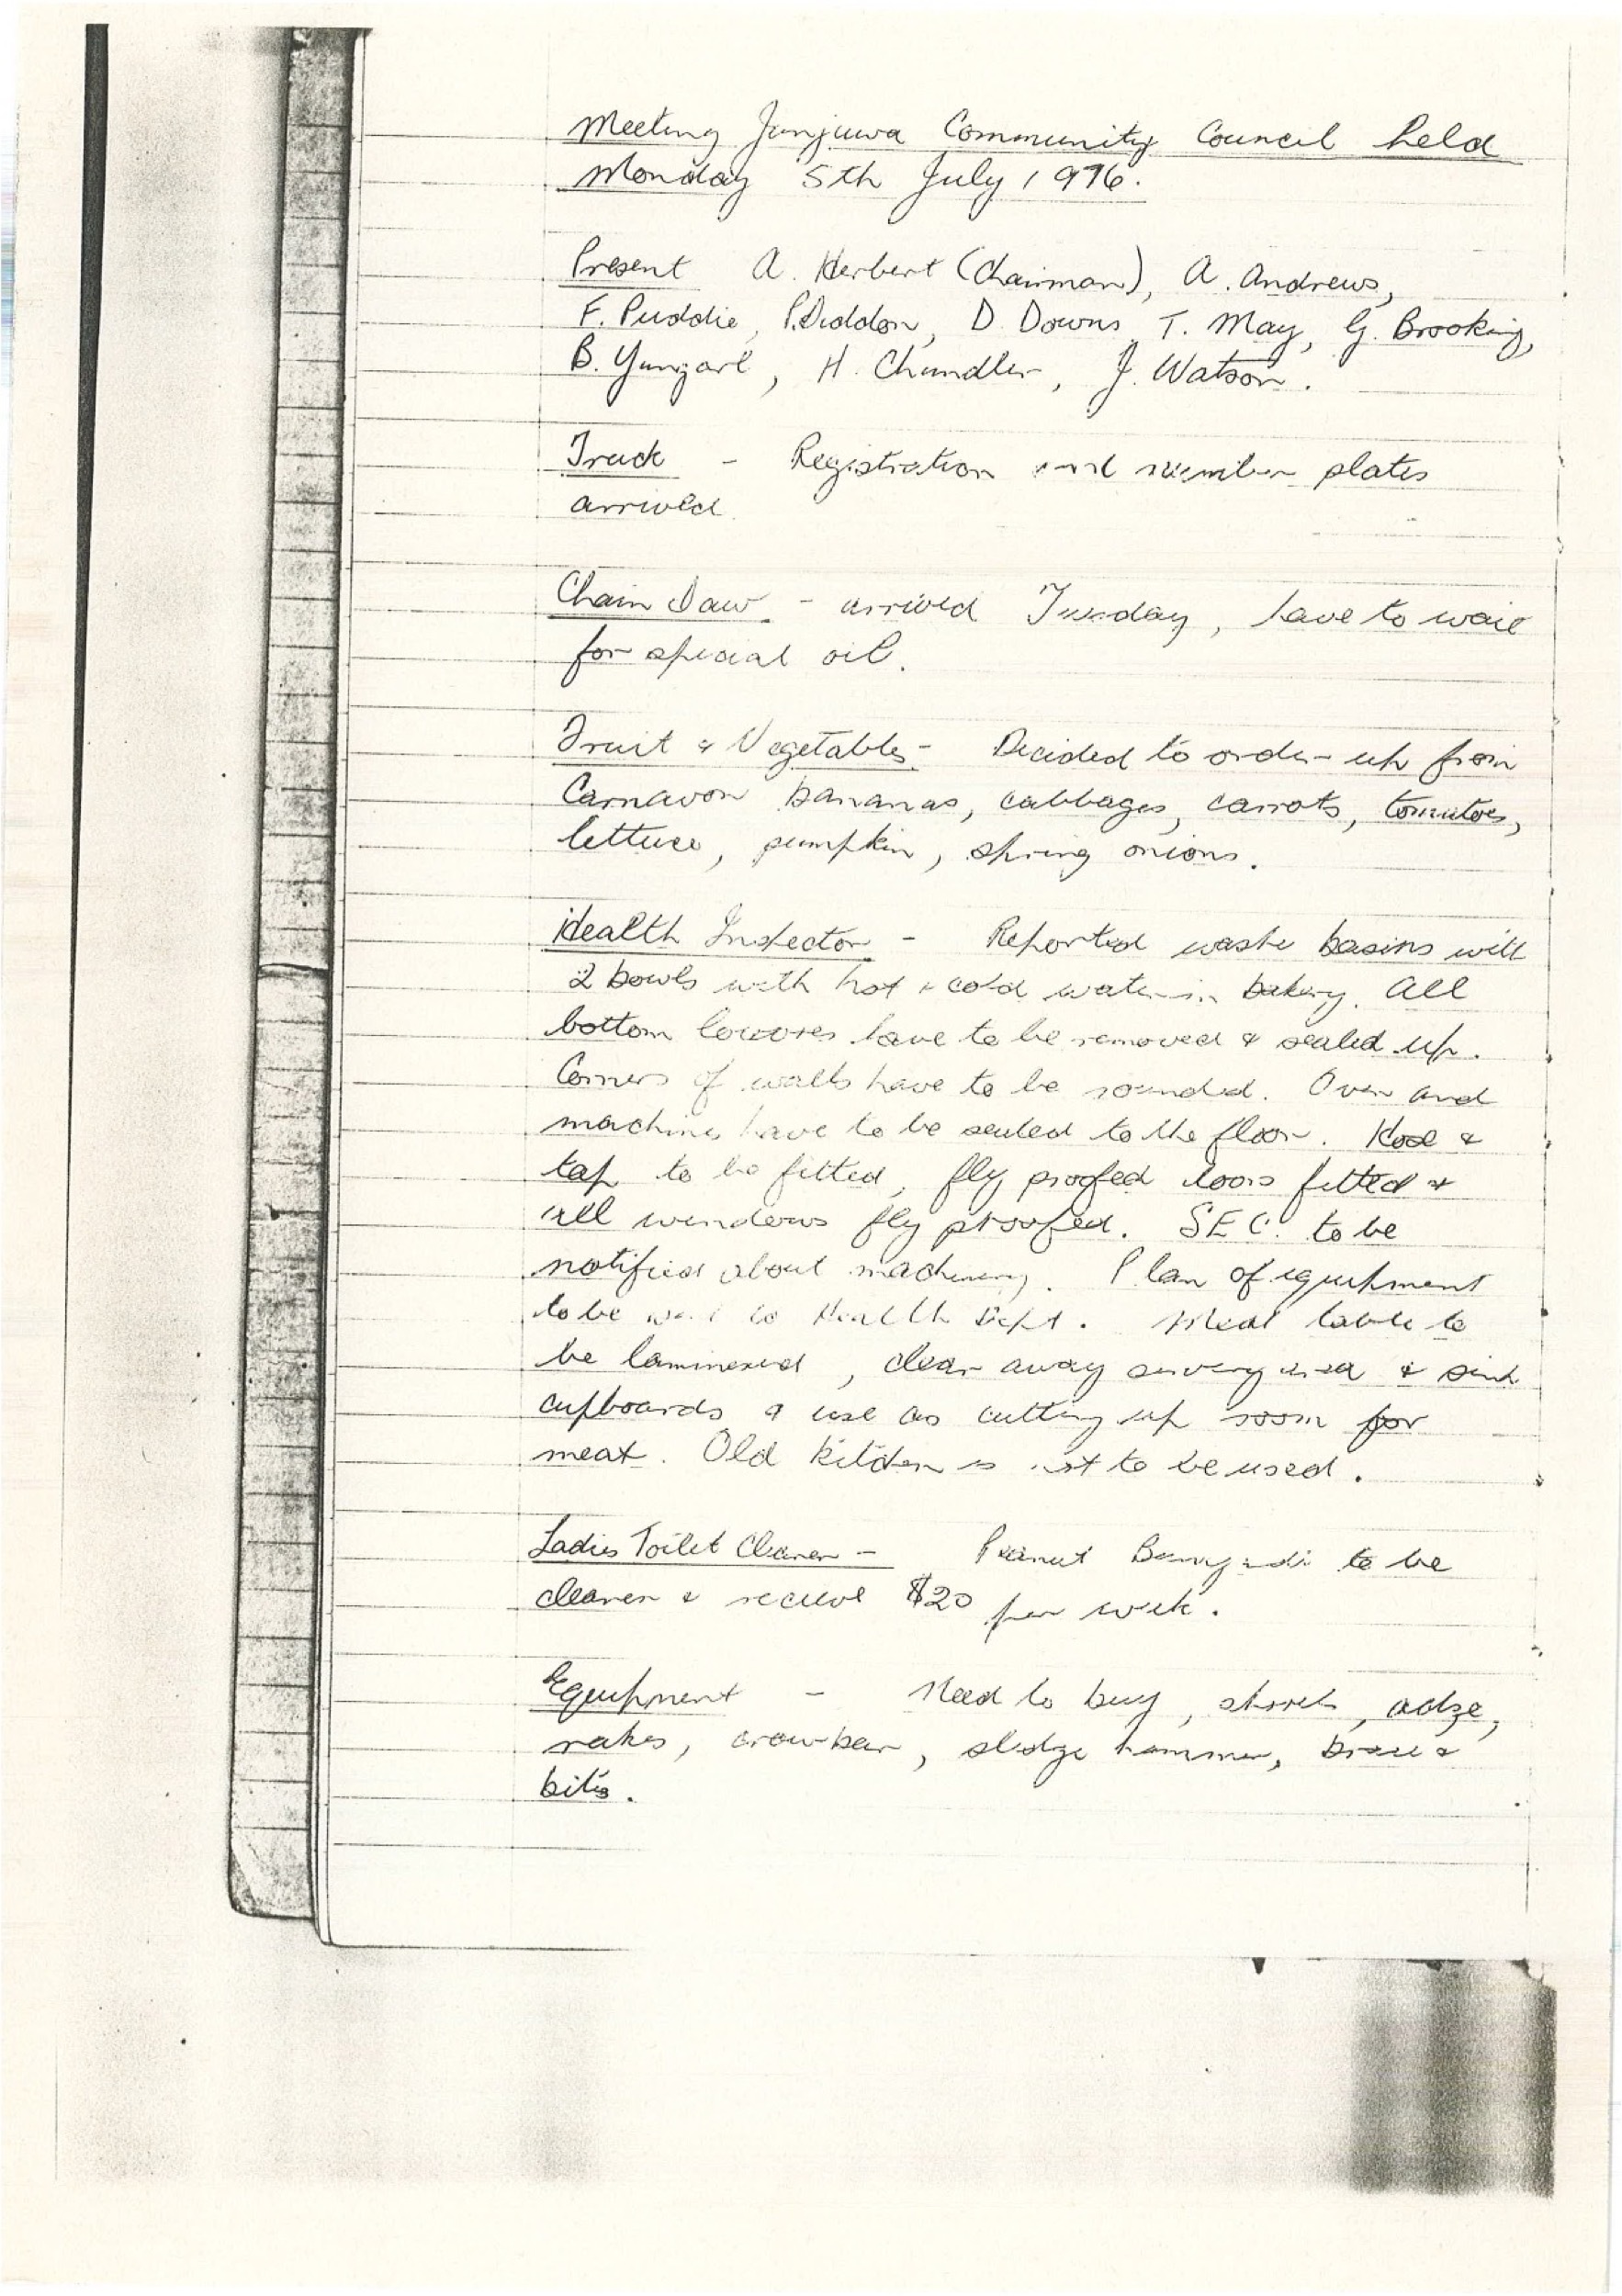 Meeting Junjuwa Community Council held
Monday 5th July 1976.
Present A. Herbert (Chairman), A. Andrews,
F. Puddie, P. Diddon, D. Downs, T. May, G. Brooking,
B. Yungarl, H. Chandler, J. Watson.
Truck - Registration and number plates
arrived
Chain Saw - arrived Tuesday, have to wait
for special oil.
Fruit & Vegetables - Decided to order up from
Carnavon bananas, cabbages, carrots, tomatoes,
lettuce, pumpkin, spring onions.
Health Inspector - Reported waste basins will
2 bowls with hot & cold water in bakery. All
bottom louvres have to be removed & sealed up.
Corners of walls have to be rounded. Oven and
machines have to be sealed to the floor. Hose &
tap to be fitted, fly proofed doors fitted &
all windows fly proofed. SEC. to be
notified about machinery. Plan of equipment
to be to Health Dept. Meat table to
be laminexed, clear away serving area & sink
cupboards & use as cutting up room for
meat. Old kitchen is not to be used.
Ladies Toilet Cleaner - Peanut to be
cleaner & recieve $20 per week.
Equipment - Need to buy, shovels, adze,
rakes, crowbar, sledge hammer, brace &
bits.